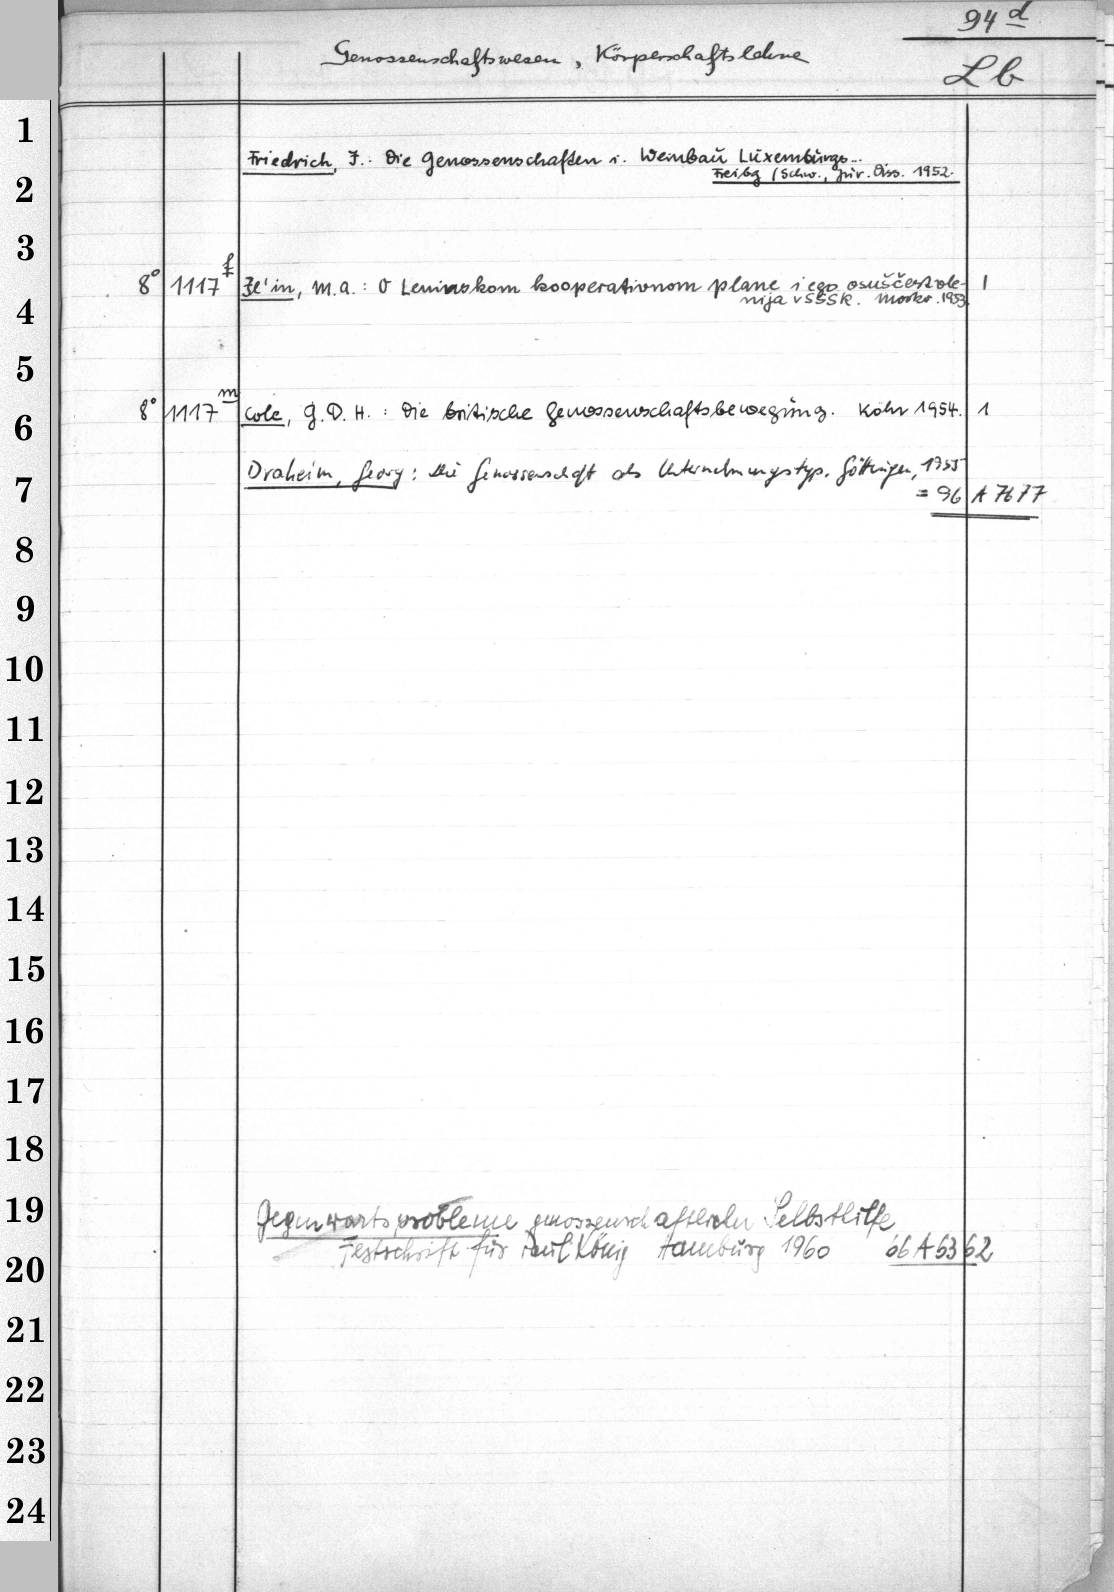 94 d
Genossenschaftswesen, Körperschaftslehre
Lb
1
Friedrich, J.: Die Genossenschaften i. Weinbau Luxemburgs...
2
Freibg (Schw., Jur. Diss. 1952.
3
8° 1117 f , M.A.: O Leninskom kooperativnom plane i ego osuščestvle- 1
4
nija v SSSR. Moskv. 1953
5
8° 1117 m Cole, G.D.H.: Die britische Genossenschaftsbewegung. Köln 1954. 1
6
Draheim, Georg: Die Genossenschaft als Unternehmungstyp. Göttingen, 1955
7
= 96 A 7677
8
9
10
11
12
13
14
15
16
17
18
19
Gegenwartsprobleme genossenschaftlicher Selbsthilfe
Festschrift für Paul König Hamburg 1960 66 A 5362
20
21
22
23
24